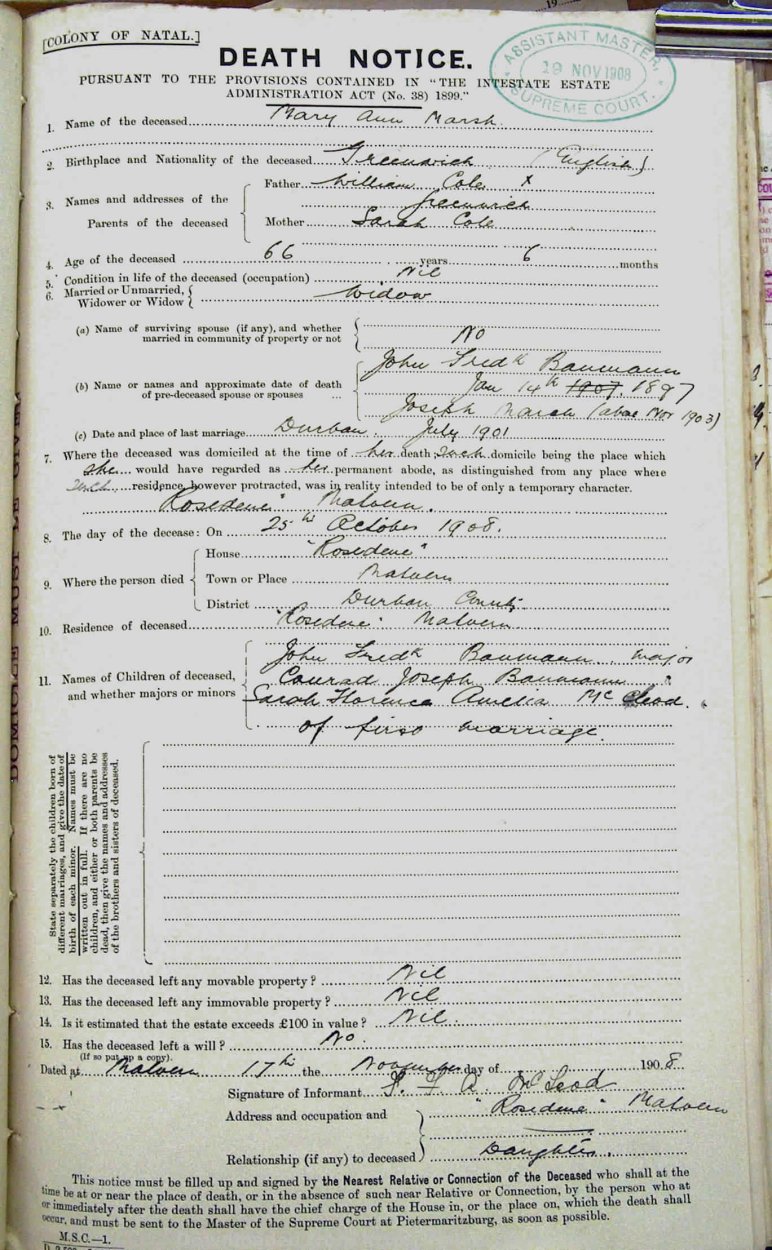 [COLONY OF NATAL.]
DEATH NOTICE.
ASSISTANT MASTER,
19 NOV 1908
SUPREME COURT.
PURSUANT TO THE PROVISIONS CONTAINED IN "THE INTESTATE ESTATE
ADMINISTRATION ACT (No. 38) 1899."
1. Name of the deceased Mary Ann Marsh
2. Birthplace and Nationality of the deceased Greenwich (English)
3. Names and addresses of the Parents of the deceased
Father William Cole x
Greenwich
Mother Sarah Cole
4. Age of the deceased 66 years 6 months
5. Condition in life of the deceased (occupation) Nil
6. Married or Unmarried,
Widower or Widow Widow
(a) Name of surviving spouse (if any), and whether
married in community of property or not No
John Fredk Baumann
(b) Name or names and approximate date of death
of pre-deceased spouse or spouses ...
Jan 14th 1907. 1897
Joseph Marsh (about Nov 1903)
(c) Date and place of last marriage Durban. July 1901
7. Where the deceased was domiciled at the time of her death; such domicile being the place which
she would have regarded as her permanent abode, as distinguished from any place where
such residence, however protracted, was in reality intended to be only of a temporary character.
"Rosedene" Malvern.
8. The day of the decease: On 25th October 1908.
9. Where the person died
House "Rosedene"
Town or Place Malvern
District Durban County
10. Residence of deceased "Rosedene" Malvern
11. Names of Children of deceased,
and whether majors or minors
John Fredk Baumann. major
Conrad Joseph Baumann "
Sarah Florence Amelia McCleod. "
of first marriage.
State separately the children born of
different marriages, and give the date of
birth of each minor. Names must be
written out in full. If there are no
children, and either or both parents be
dead, then give the names and addresses
of the brothers and sisters of deceased.
DOMICILE MUST BE GIVEN
12. Has the deceased left any movable property? Nil
13. Has the deceased left any immovable property? Nil
14. Is it estimated that the estate exceeds £100 in value? Nil.
15. Has the deceased left a will? No.
(If so put up a copy).
Dated at Malvern 17th the November day of 1908
Signature of Informant S. F. A. McLeod
Address and occupation and "Rosedene" Malvern
Relationship (if any) to deceased Daughter.
This notice must be filled up and signed by the Nearest Relative or Connection of the Deceased who shall at the
time be at or near the place of death, or in the absence of such near Relative or Connection, by the person who at
or immediately after the death shall have the chief charge of the House in, or the place on, which the death shall
occur, and must be sent to the Master of the Supreme Court at Pietermaritzburg, as soon as possible.
M.S.C.—1.